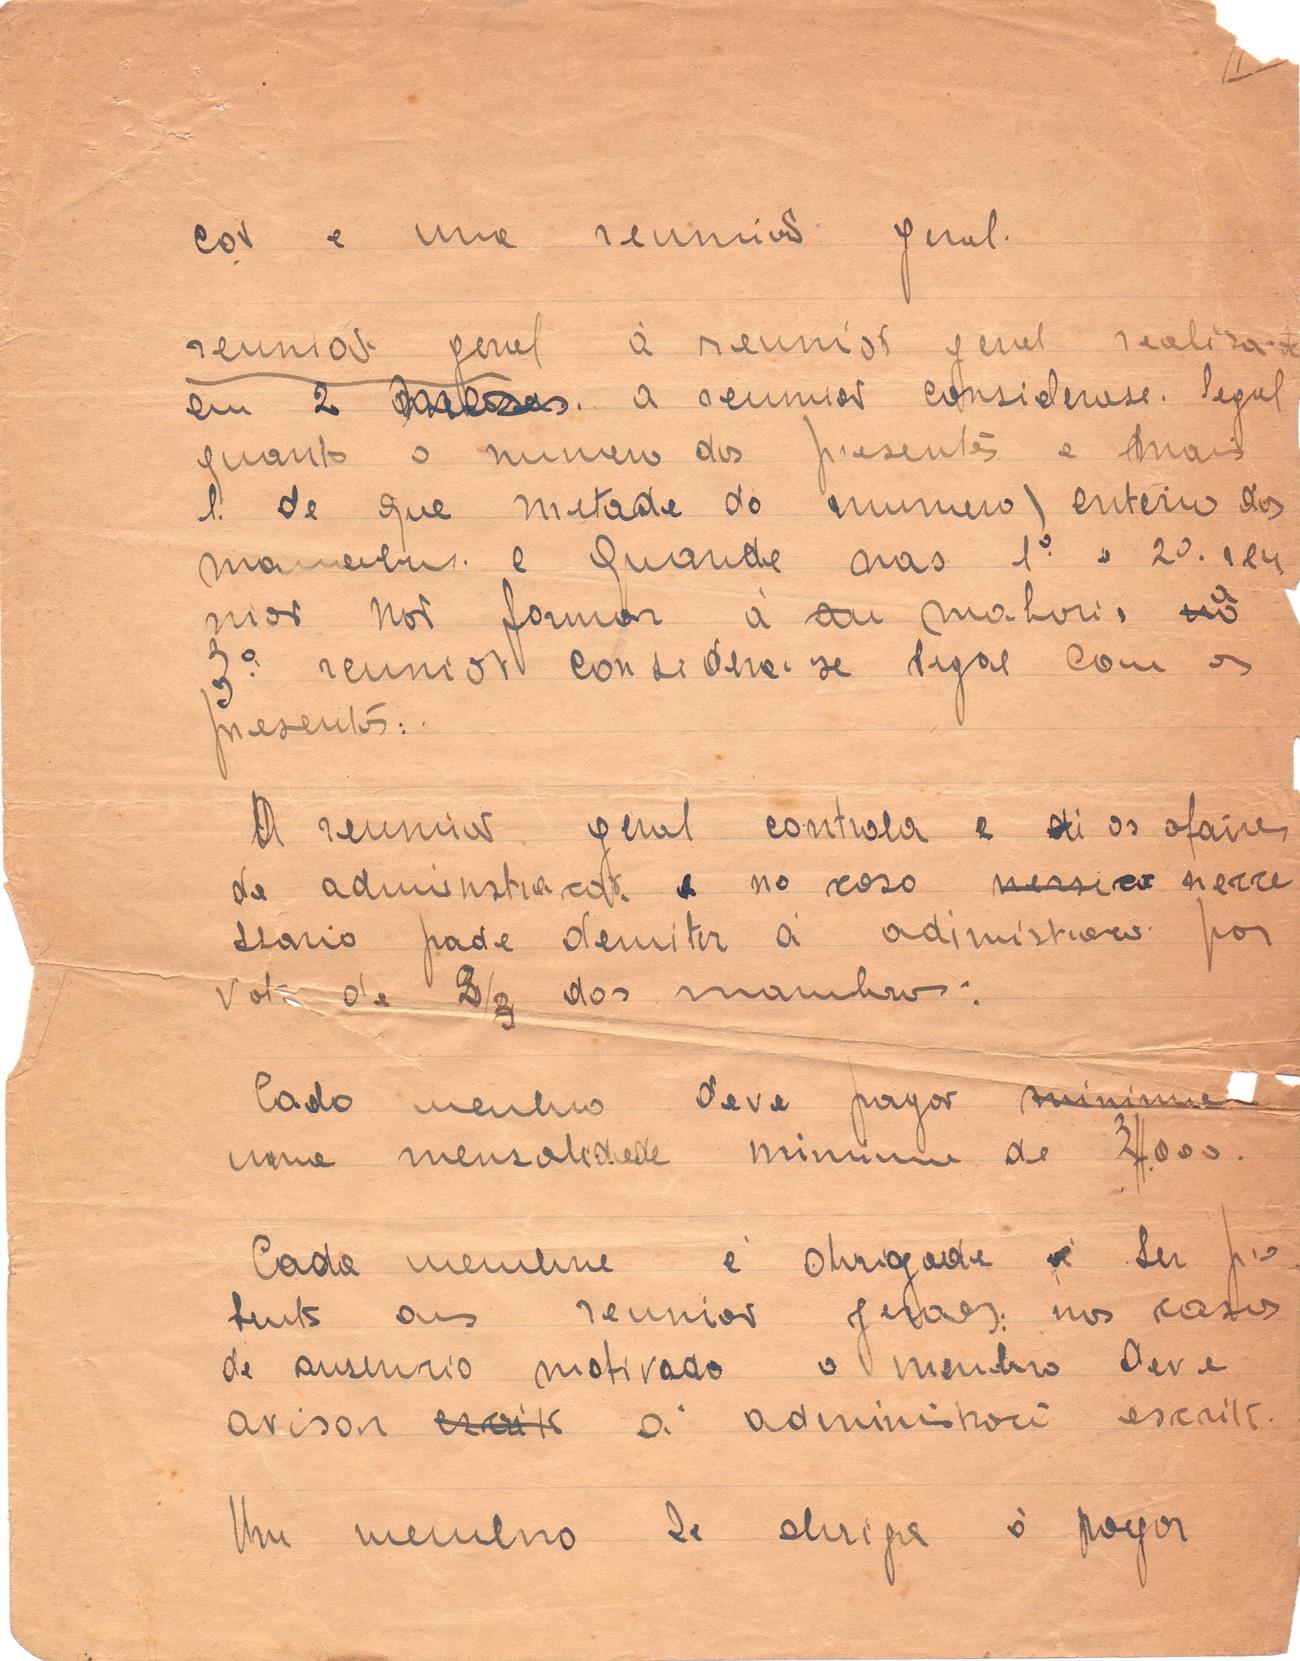 cov e uma reunios geral.
reunior geral á reunior geral realiza-se
em 2 meses. a reunior considerase. legal
quanto o numero dos presentes e mais
de que metade do numero enteiro dos
e quande nas 1º e 2º. reu
nior nor formar á maioria na
3º reunior considera-se legal com os
presentes.
A reunior geral controla e di os afaires
de e no caso necce
ssario pade demiter á por
voto de 2/3 dos mambros.
Cado membro deve pagar minimu
uma mensalidade minimum de 3$000.
Cada membre é obrigade á ser pre
sente aus reunior geraes: nos casos
de ausencio motivado o membro deve
avisar escrito á escrito.
Um membro se obriga á pagar